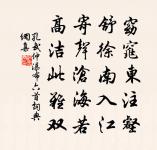 窈窕東注壑
舒徐南入江
寄聲滄海若
高洁此難双
孔武仲瀑布六首詞典
網集